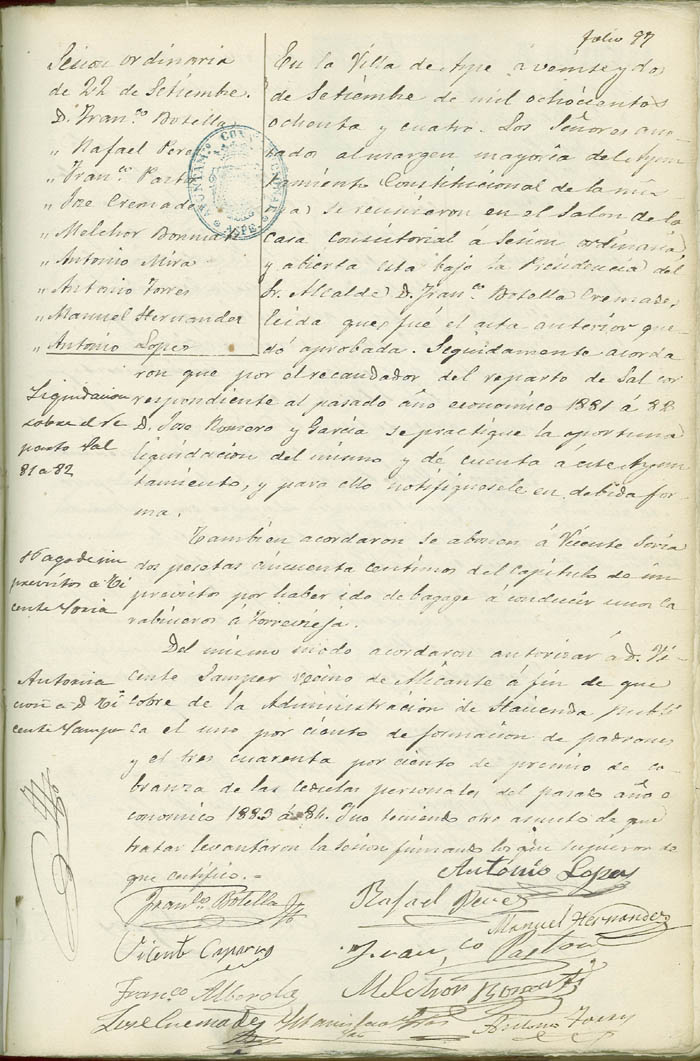 Folio 97
Sesion ordinaria
de 22 de Setiembre.
D. Fran.co Botella
" Rafael Pere
" Fran.co Pastor
" Jose Cremade
" Melchor Bonmati
" Antonio Mira
" Antonio Torres
" Manuel Hernandez
" Antonio Lopez
AYUNTAM.º CONSTITUCIONAL
ASPE
En la Villa de Aspe á veinte y dos
de Setiembre de mil ochocientos
ochenta y cuatro. Los Señores ano-
tados al margen mayoria del Ayun
tamiento Constitucional de la mis-
ma se reunieron en el Salon de la
casa consistorial á Sesion ordinaria
y abierta esta bajo la Presidencia del
Sr. Alcalde D. Fran.co Botella Cremades,
leida que fué el acta anterior que-
dó aprobada. Seguidamente acorda
ron que por el recaudador del reparto de Sal cor
respondiente al pasado año económico 1881 á 82
D. Jose Romero y Garcia se practique la oportuna
liquidacion del mismo y dé cuenta á este Ayun
tamiento, y para ello notifiquesele en debida for
ma.
Liquidacion
sobre el re
parto Sal
81 a 82
Tambien acordaron se abonen á Vicente Soria
dos pesetas cincuenta centimos del Capitulo de im
previstos por haber ido de bagage á conducir unos ca
rabineros á Torrevieja.
Pago de im
previstos a Vi
cente Soria
Del mismo modo acordaron autorizar á D. Vi-
cente Samper vecino de Alicante á fin de que
cobre de la Administracion de Hacienda publi
ca el uno por ciento de formacion de padrones
y el tres cuarenta por ciento de premio de co-
branza de las cedulas personales del pasado año e
conomico 1883 á 84. Y no teniendo otro asunto de que
tratar levantaron la sesion firmando los que supieron de
que certifico.-
Autoriza
cion a D. Vi
cente Samper
Antonio Lopez
Fran.co Botella
Rafael Perez
Manuel Hernandez
Vicente Caparros
Fran.co Pastor
Franco Alberola
Melchor Bonmati
Jose Cremades
Antonio Torres